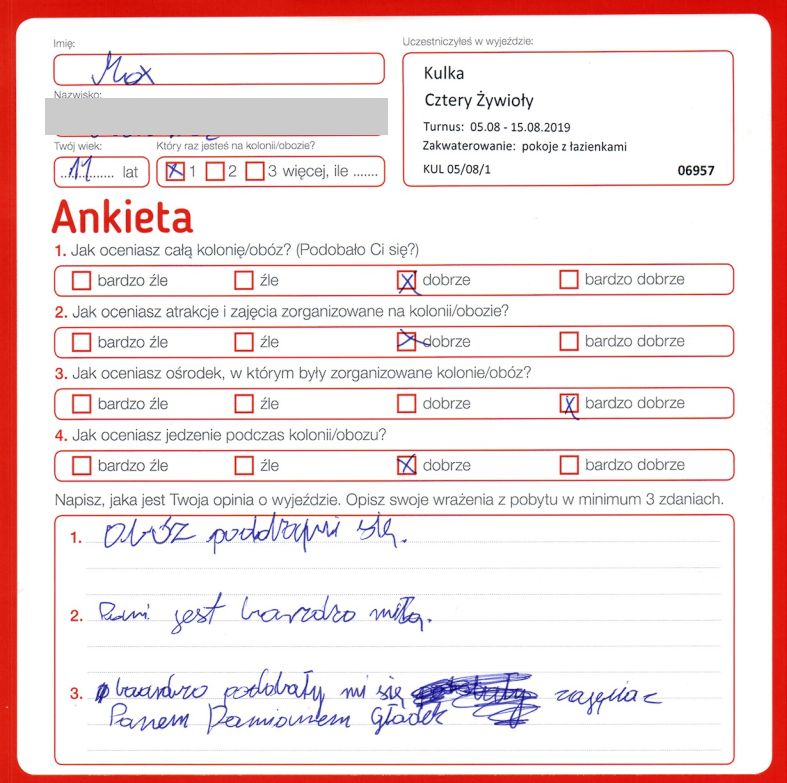 Imię:
Max
Nazwisko:
Twój wiek:
11 lat
Który raz jesteś na kolonii/obozie?
1 2 3 więcej, ile .......
Uczestniczyłeś w wyjeździe:
Kulka
Cztery Żywioły
Turnus: 05.08 - 15.08.2019
Zakwaterowanie: pokoje z łazienkami
KUL 05/08/1 06957
Ankieta
1. Jak oceniasz całą kolonię/obóz? (Podobało Ci się?)
bardzo źle źle dobrze bardzo dobrze
2. Jak oceniasz atrakcje i zajęcia zorganizowane na kolonii/obozie?
bardzo źle źle dobrze bardzo dobrze
3. Jak oceniasz ośrodek, w którym były zorganizowane kolonie/obóz?
bardzo źle źle dobrze bardzo dobrze
4. Jak oceniasz jedzenie podczas kolonii/obozu?
bardzo źle źle dobrze bardzo dobrze
Napisz, jaka jest Twoja opinia o wyjeździe. Opisz swoje wrażenia z pobytu w minimum 3 zdaniach.
1. Obóz się.
2. Pani jest bardzo miła.
3. bardzo podobały mi się
Panem Damianem Gładek